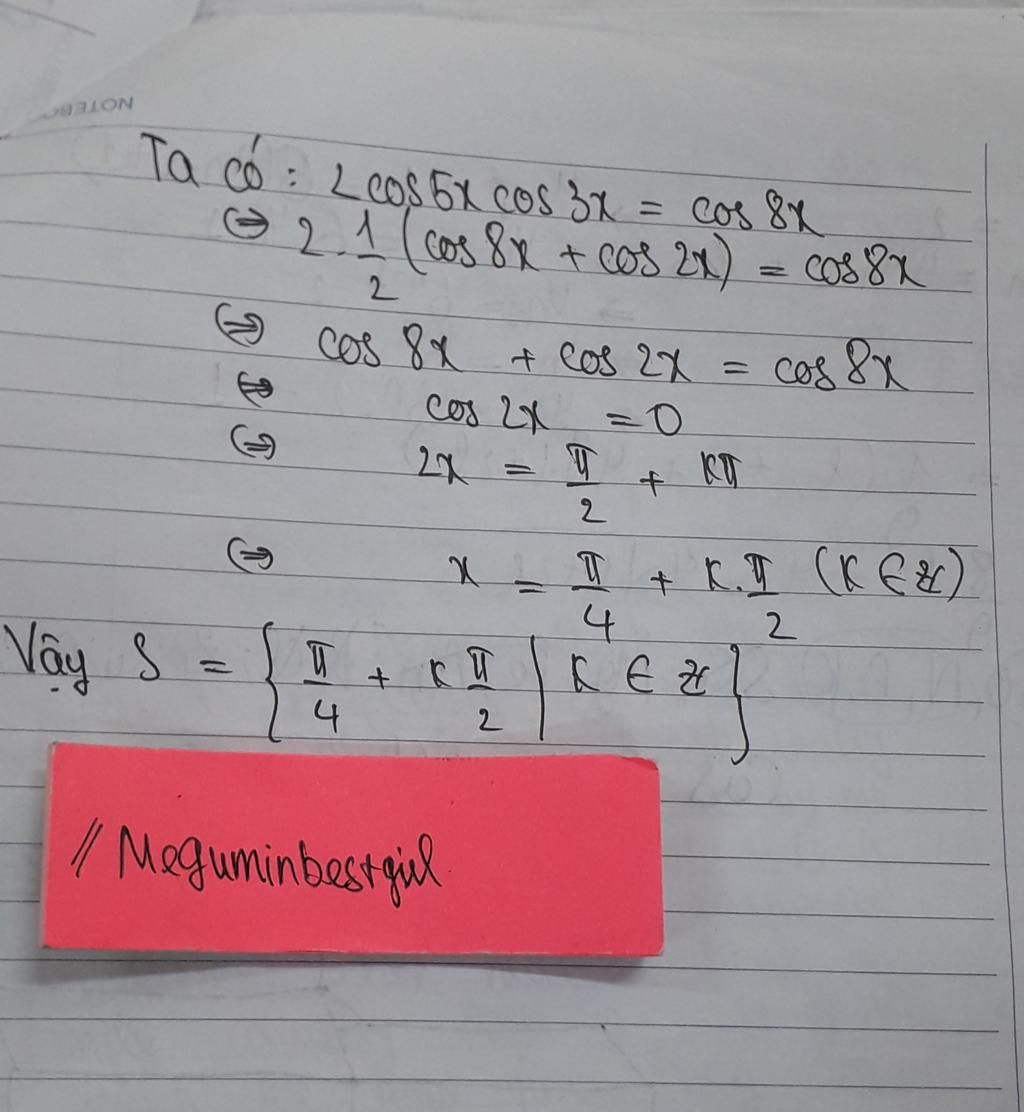 NOTEBO
Ta có : 2cos5x cos3x = cos8x
⇔ 2.1/2 (cos8x + cos2x) = cos8x
⇔ cos8x + cos2x = cos8x
⇔ cos2x = 0
⇔ 2x = π/2 + kπ
⇔ x = π/4 + k.π/2 (k ∈ Z)
Vậy S = {π/4 + k π/2 | k ∈ Z}
// Meguminbestgirl